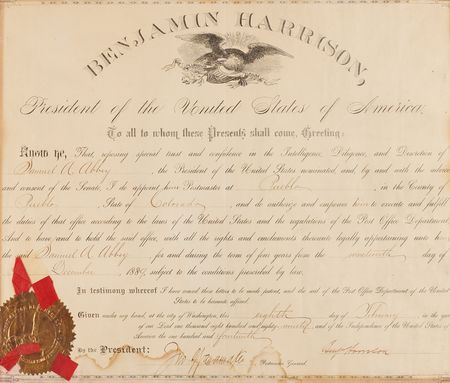 BENJAMIN HARRISON,
President of the United States of America,
To all to whom these Presents shall come, Greeting:
Know Ye, That, reposing special trust and confidence in the Intelligence, Diligence, and Discretion of
Samuel A. Abbey, the President of the United States nominated, and, by and with the advice
and consent of the Senate, I do appoint him Postmaster at Pueblo, in the County of
Pueblo, State of Colorado, and do authorize and empower him to execute and fulfill
the duties of that office according to the laws of the United States and the regulations of the Post Office Department.
And to have and to hold the said office, with all the rights and emoluments thereunto legally appertaining unto
the said Samuel A. Abbey for and during the term of four years from the day of
December, 1889, subject to the conditions prescribed by law.
In testimony whereof I have caused these letters to be made patent, and the seal of the Post Office Department of the United
States to be hereunto affixed.
Given under my hand, at the city of Washington, this day of February, in the year
of our Lord one thousand eight hundred and eighty, and of the Independence of the United States of
America the one hundred and fourteenth
By the President:
Postmaster General.